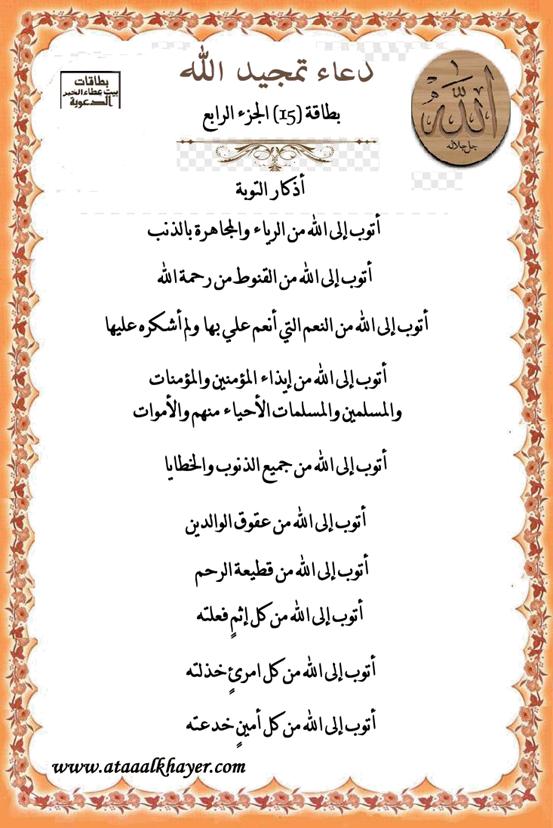 دعاء تمجيد الله
بطاقات
بيت عطاء الخير
الدعوية
الله
جل جلاله
بطاقة (15) الجزء الرابع
أذكار التوبة
أتوب إلى الله من الرياء والمجاهرة بالذنب
أتوب إلى الله من القنوط من رحمة الله
أتوب إلى الله من النعم التي أنعم علي بها ولم أشكره عليها
أتوب إلى الله من إيذاء المؤمنين والمؤمنات
والمسلمين والمسلمات الأحياء منهم والأموات
أتوب إلى الله من جميع الذنوب والخطايا
أتوب إلى الله من عقوق الوالدين
أتوب إلى الله من قطيعة الرحم
أتوب إلى الله من كل إثمٍ فعلته
أتوب إلى الله من كل امرئٍ خذلته
أتوب إلى الله من كل أمينٍ خدعته
www.ataaalkhayer.com